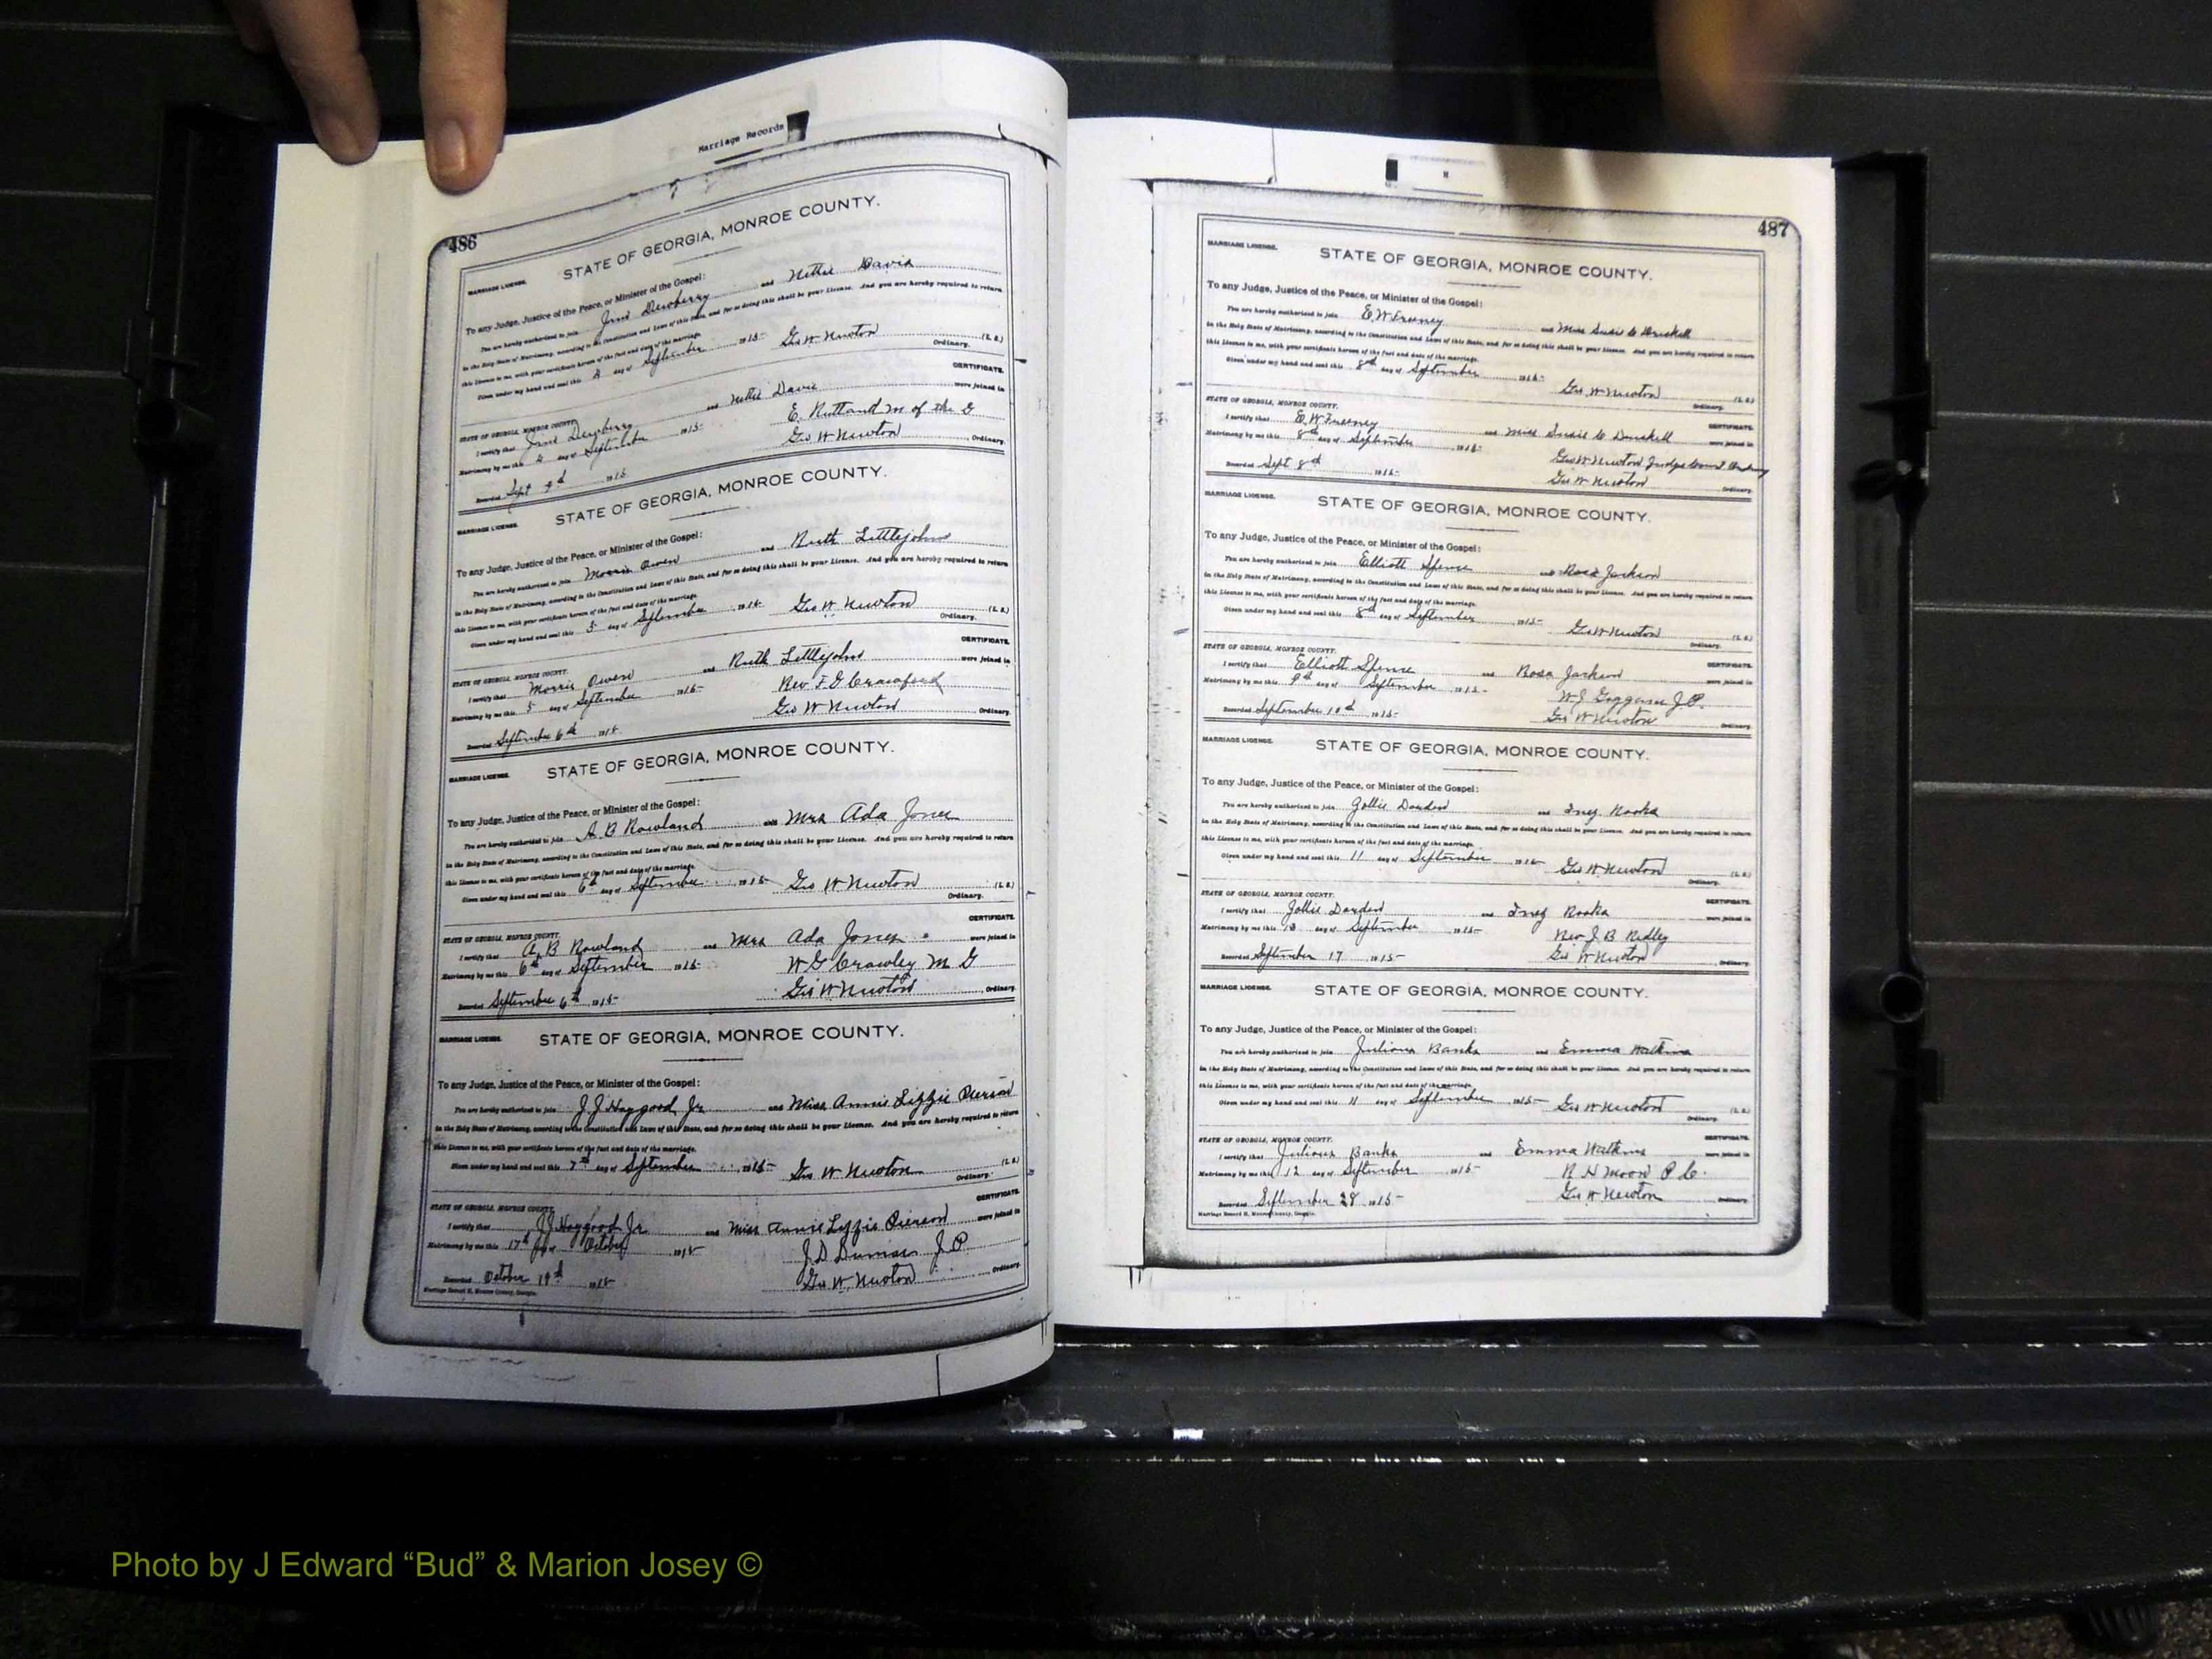 Marriage Records
486
STATE OF GEORGIA, MONROE COUNTY.
MARRIAGE LICENSE.
To any Judge, Justice of the Peace, or Minister of the Gospel:
You are hereby authorized to join Dewberry and Nettie Davis
in the Holy State of Matrimony, according to the Constitution and Laws of this State, and for so doing this shall be your License. And you are hereby required to return
this License to me, with your certificate hereon of the fact and date of the marriage.
Given under my hand and seal this 4 day of September 1915 Geo W Newton (L. S.)
Ordinary.
STATE OF GEORGIA, MONROE COUNTY. CERTIFICATE.
I certify that Dewberry and Nettie Davis were joined in
Matrimony by me this day of September 1915 E. Rutland M of the G
Recorded Sept 1915 Geo W Newton, Ordinary.
STATE OF GEORGIA, MONROE COUNTY.
MARRIAGE LICENSE.
To any Judge, Justice of the Peace, or Minister of the Gospel:
You are hereby authorized to join Morris Owen and Ruth Littlejohns
in the Holy State of Matrimony, according to the Constitution and Laws of this State, and for so doing this shall be your License. And you are hereby required to return
this License to me, with your certificate hereon of the fact and date of the marriage.
Given under my hand and seal this 5 day of September 1915 Geo W Newton (L. S.)
Ordinary.
STATE OF GEORGIA, MONROE COUNTY. CERTIFICATE.
I certify that Morris Owen and Ruth Littlejohns were joined in
Matrimony by me this 5 day of September 1915 Rev F G Crawford
Recorded September 6th 1915 Geo W Newton Ordinary.
MARRIAGE LICENSE. STATE OF GEORGIA, MONROE COUNTY.
To any Judge, Justice of the Peace, or Minister of the Gospel:
You are hereby authorized to join A B Rowland and Mrs Ada Jones
in the Holy State of Matrimony, according to the Constitution and Laws of this State, and for so doing this shall be your License. And you are hereby required to return
this License to me, with your certificate hereon of the fact and date of the marriage.
Given under my hand and seal this 6th day of September 1915 Geo W Newton (L. S.)
Ordinary.
STATE OF GEORGIA, MONROE COUNTY. CERTIFICATE.
I certify that A B Rowland and Mrs Ada Jones were joined in
Matrimony by me this 6th day of September 1915 W G Crawley M G
Recorded September 6th 1915 Geo W Newton, Ordinary.
MARRIAGE LICENSE. STATE OF GEORGIA, MONROE COUNTY.
To any Judge, Justice of the Peace, or Minister of the Gospel:
You are hereby authorized to join J J Haygood Jr and Miss Annie Lizzie Pierson
in the Holy State of Matrimony, according to the Constitution and Laws of this State, and for so doing this shall be your License. And you are hereby required to return
this License to me, with your certificate hereon of the fact and date of the marriage.
Given under my hand and seal this 7th day of September 1915 Geo W Newton (L. S.)
Ordinary.
STATE OF GEORGIA, MONROE COUNTY. CERTIFICATE.
I certify that J J Haygood Jr and Miss Annie Lizzie Pierson were joined in
Matrimony by me this 17th day of October 1915 J D Dumas J P
Recorded October 19th 1915 Geo W. Newton Ordinary.
Marriage Record H, Monroe County, Georgia.
H
487
MARRIAGE LICENSE. STATE OF GEORGIA, MONROE COUNTY.
To any Judge, Justice of the Peace, or Minister of the Gospel:
You are hereby authorized to join E W Freeney and Miss Susie C Driskell
in the Holy State of Matrimony, according to the Constitution and Laws of this State, and for so doing this shall be your License. And you are hereby required to return
this License to me, with your certificate hereon of the fact and date of the marriage.
Given under my hand and seal this 8th day of September 1915 Geo W Newton (L. S.)
Ordinary.
STATE OF GEORGIA, MONROE COUNTY. CERTIFICATE.
I certify that E W Freeney and Miss Susie C Driskell were joined in
Matrimony by me this 8th day of September 1915 Geo W Newton Judge Court Ordinary
Recorded Sept 8th 1915 Geo W Newton Ordinary.
MARRIAGE LICENSE. STATE OF GEORGIA, MONROE COUNTY.
To any Judge, Justice of the Peace, or Minister of the Gospel:
You are hereby authorized to join Elliott Spence and Rosa Jackson
in the Holy State of Matrimony, according to the Constitution and Laws of this State, and for so doing this shall be your License. And you are hereby required to return
this License to me, with your certificate hereon of the fact and date of the marriage.
Given under my hand and seal this 8th day of September 1915 Geo W Newton (L. S.)
Ordinary.
STATE OF GEORGIA, MONROE COUNTY. CERTIFICATE.
I certify that Elliott Spence and Rosa Jackson were joined in
Matrimony by me this 9th day of September 1915 W J Goggans J. P.
Recorded September 10th 1915 Geo W Newton Ordinary.
MARRIAGE LICENSE. STATE OF GEORGIA, MONROE COUNTY.
To any Judge, Justice of the Peace, or Minister of the Gospel:
You are hereby authorized to join Jollie Darden and Inez Rooks
in the Holy State of Matrimony, according to the Constitution and Laws of this State, and for so doing this shall be your License. And you are hereby required to return
this License to me, with your certificate hereon of the fact and date of the marriage.
Given under my hand and seal this 11 day of September 1915 Geo W Newton (L. S.)
Ordinary.
STATE OF GEORGIA, MONROE COUNTY. CERTIFICATE.
I certify that Jollie Darden and Inez Rooks were joined in
Matrimony by me this day of September 1915 Rev J B Ridley
Recorded September 17 1915 Geo W Newton Ordinary.
MARRIAGE LICENSE. STATE OF GEORGIA, MONROE COUNTY.
To any Judge, Justice of the Peace, or Minister of the Gospel:
You are hereby authorized to join Julious Banks and Emma Watkins
in the Holy State of Matrimony, according to the Constitution and Laws of this State, and for so doing this shall be your License. And you are hereby required to return
this License to me, with your certificate hereon of the fact and date of the marriage.
Given under my hand and seal this 11 day of September 1915 Geo W Newton (L. S.)
Ordinary.
STATE OF GEORGIA, MONROE COUNTY. CERTIFICATE.
I certify that Julious Banks and Emma Watkins were joined in
Matrimony by me this 12 day of September 1915 R H Moore P. C.
Recorded September 28 1915 Geo W Newton Ordinary.
Marriage Record H, Monroe County, Georgia.
Photo by J Edward “Bud” & Marion Josey ©